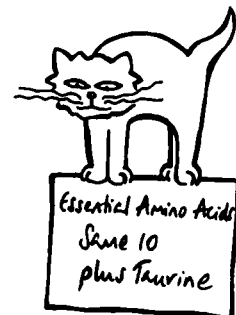 Essential Amino Acids
Same 10
plus Taurine